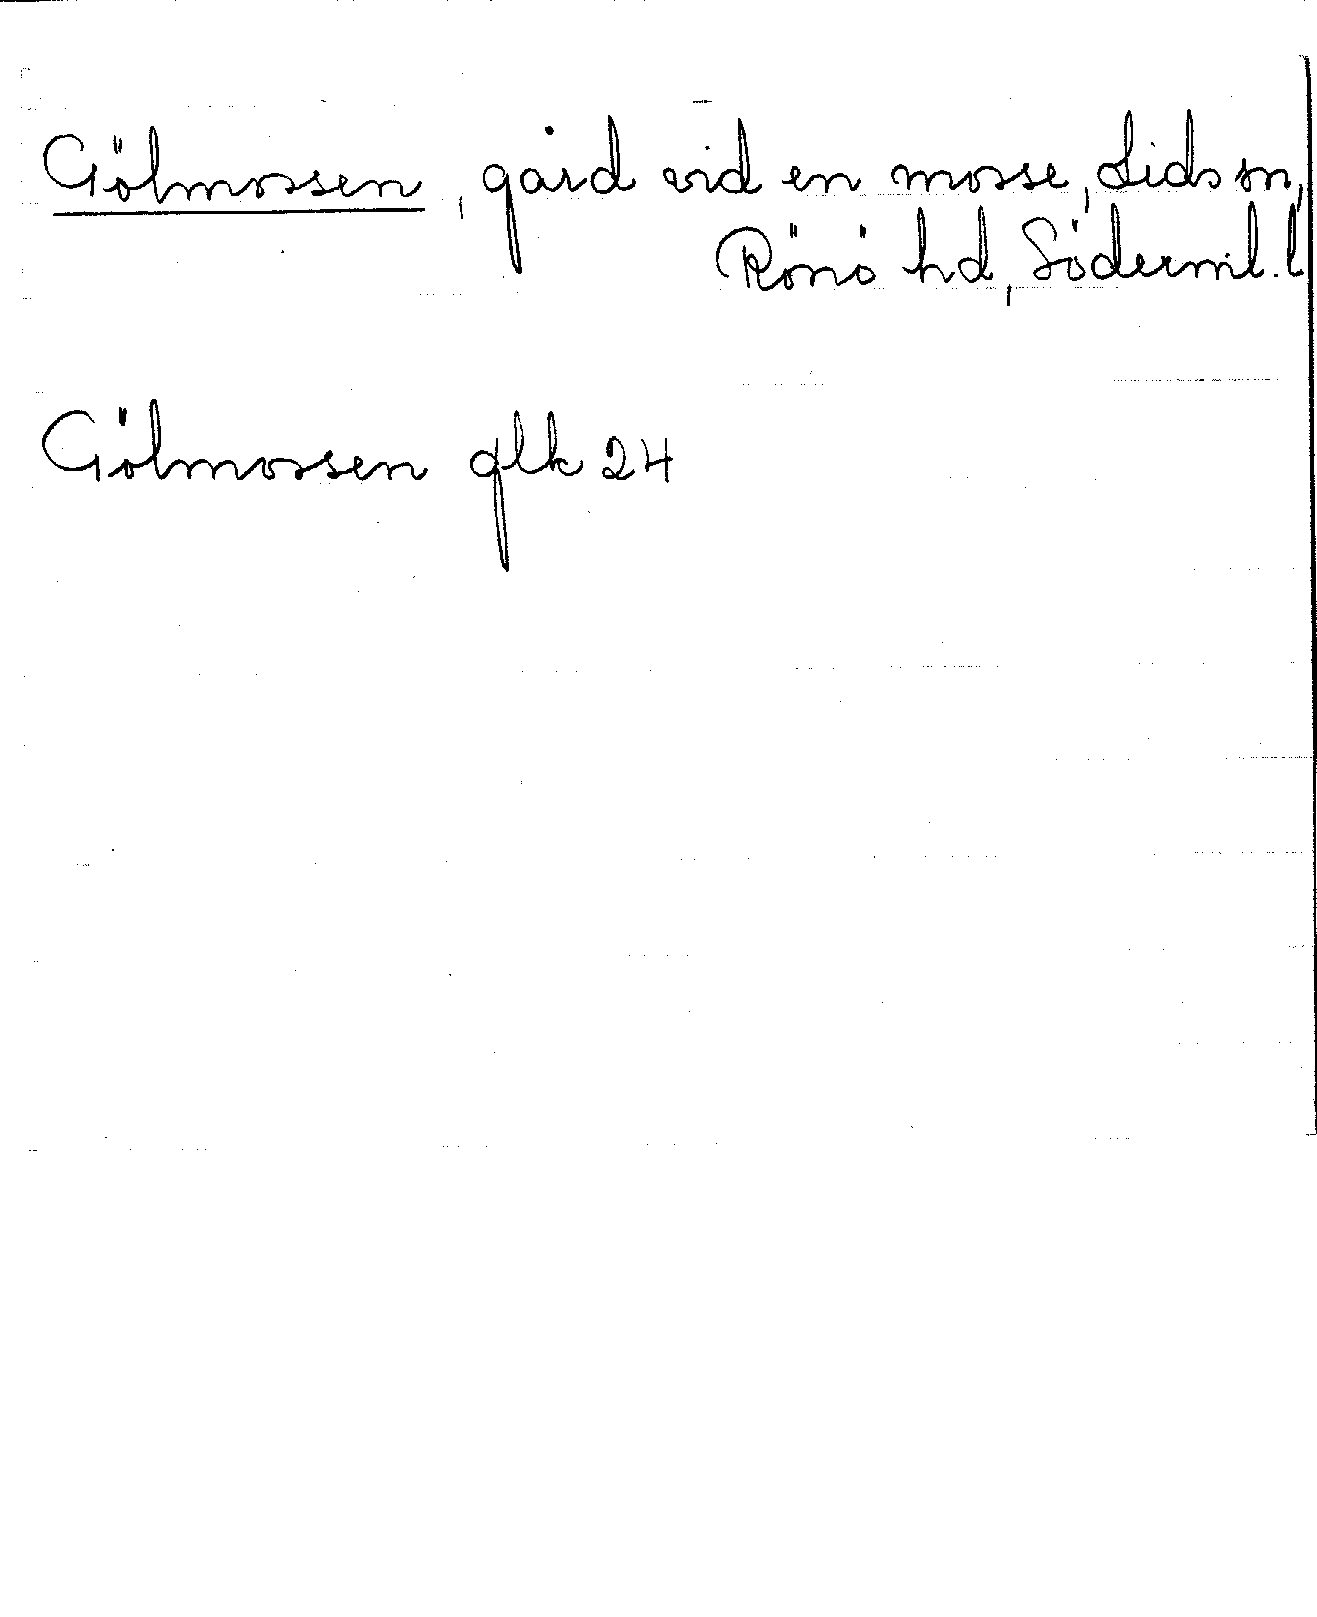 Gölmossen, gård vid en mosse, Lids sn,
Rönö hd, Söderml. l
Gölmossen glk 24